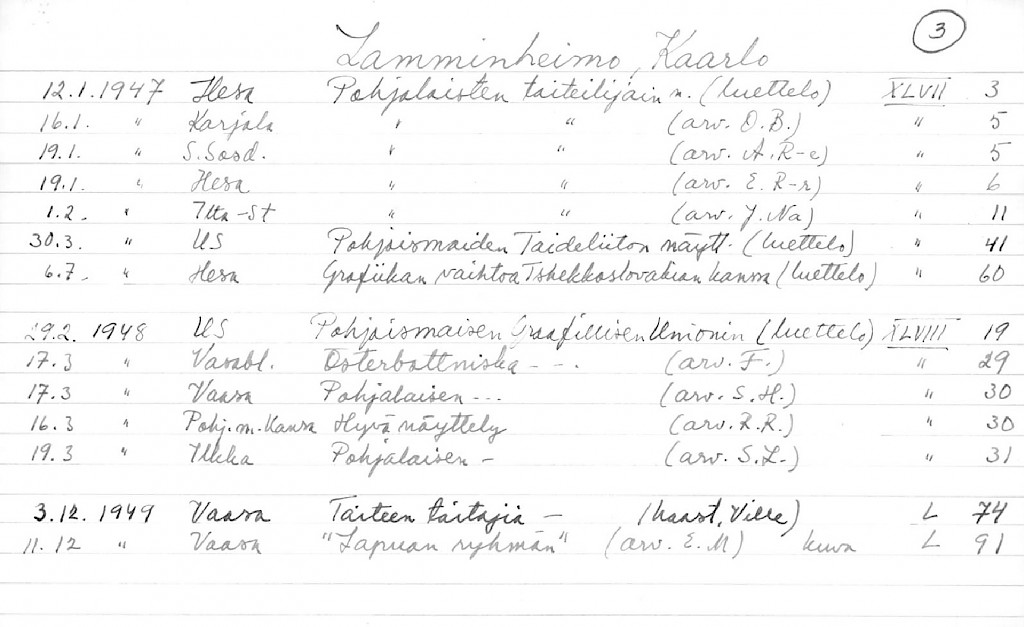 3
Lamminheimo, Kaarlo
12.1.1947 Hesa Pohjalaisten taiteilijain n. (luettelo) XLVII 3
16.1. " Karjala " " (arv. O.B.) " 5
19.1. " S.Sosd. " " (arv. A.R-e) " 5
19.1. " Hesa " " (arv. E.R-r) " 6
1.2. " Ilta-St " " (arv. J.Na) " 11
30.3. " US Pohjoismaiden Taideliiton näytt. (luettelo) " 41
6.7. " Hesa Grafiikan vaihtoa Tshekkoslovakian kanssa (luettelo) " 60
29.2. 1948 US Pohjoismaisen Graafillisen Unionin (luettelo) XLVIII 19
17.3 " Vasabl. Österbottniska - - . (arv. F.) " 29
17.3 " Vaasa Pohjalaisen - - - (arv. S.H.) " 30
16.3 " Pohj.m.Kansa Hyvä näyttely (arv. R.R.) " 30
19.3 " Ilkka Pohjalaisen - (arv. S.L.) " 31
3.12. 1949 Vaasa Taiteen taitajia - (haast, Ville) L 74
11.12 " Vaasa "Lapuan ryhmän" (arv. E.M) kuva L 91